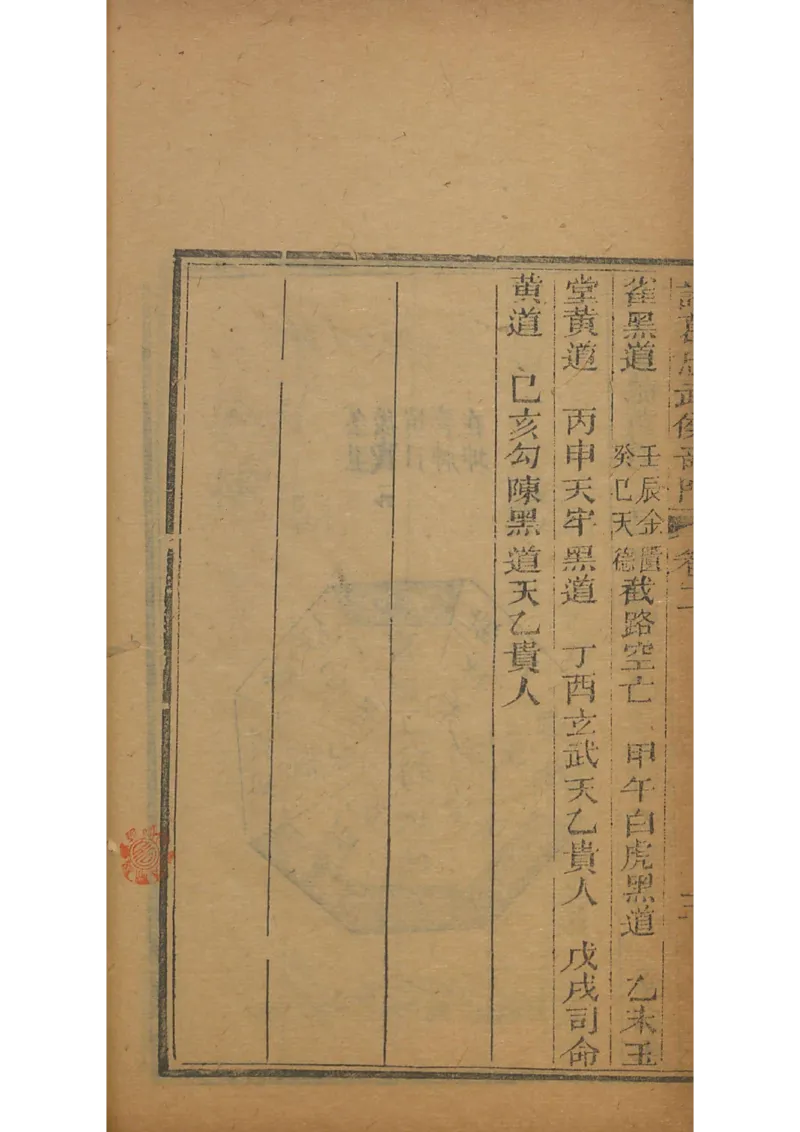 諸葛忠武侯奇門 卷二
雀黑道 壬辰金匱 癸巳天德 截路空亡 甲午白虎黑道 乙未玉
堂黃道 丙申天牢黑道 丁酉玄武天乙貴人 戊戌司命
黃道 己亥勾陳黑道天乙貴人